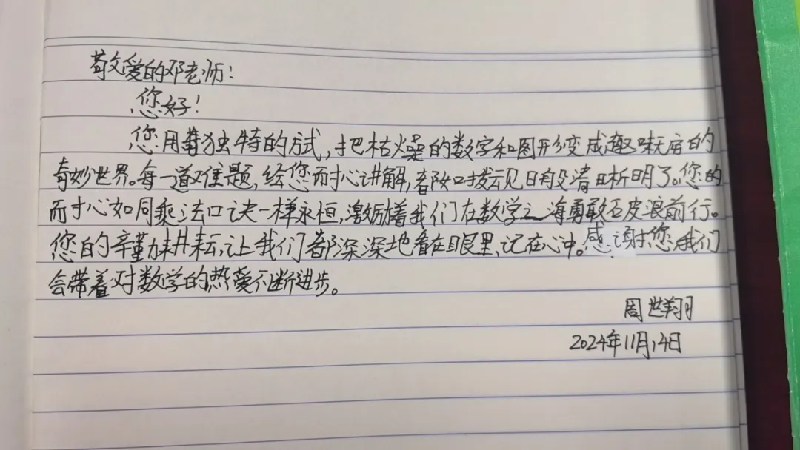 敬爱的邓老师！
您好！
您用着独特的方式，把枯燥的数字和图形变成趣味无穷的
奇妙世界。每一道难题，经您耐心讲解，都如拨云见日般清晰明了。您的
耐心如同乘法口诀一样永恒，激励着我们在数学之海勇敢丕皮浪前行。
您的辛勤耕耘，让我们都深深地看在眼里，记在心中。感谢您，我们
会带着对数学的热爱不断进步。
周世翔
2024年11月14日